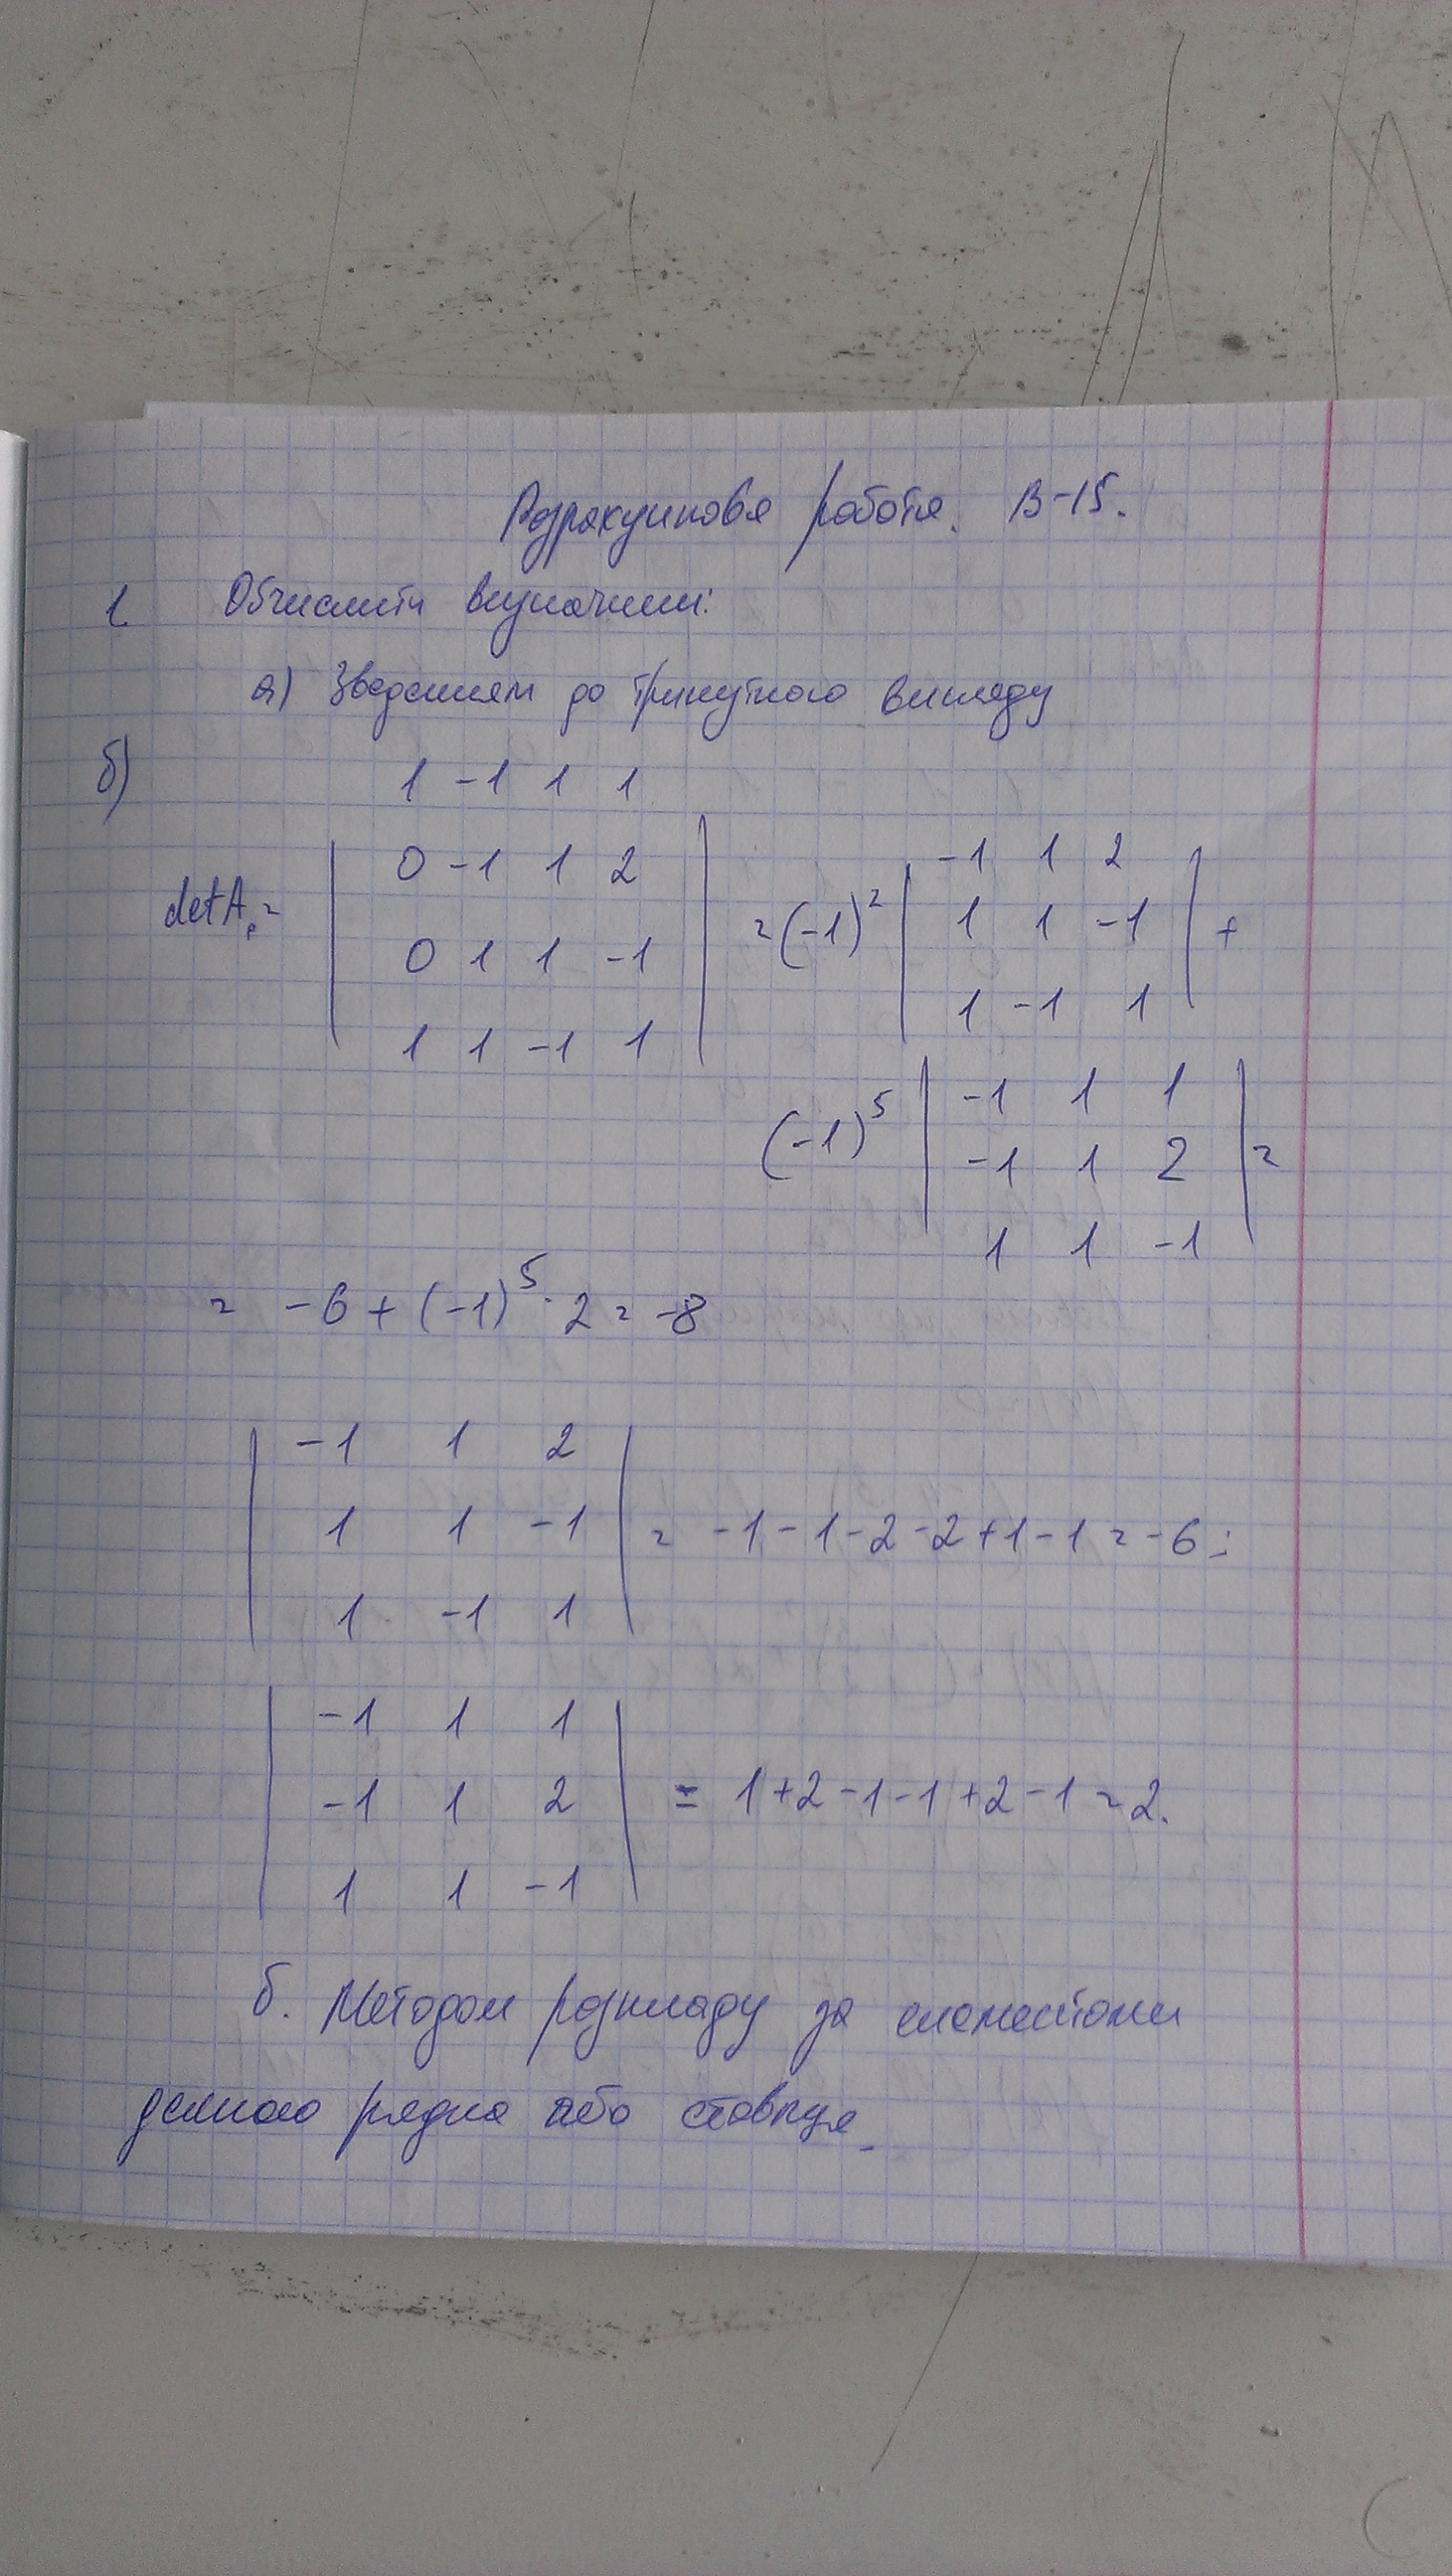 Розрахункова робота. В-15.
1. Обчислити визначник:
а) Зведенням до трикутного вигляду
б)
1 -1 1 1
0 -1 1 2
detA = = (-1)^2
0 1 1 -1
1 1 -1 1
-1 1 2
1 1 -1 +
1 -1 1
(-1)^5
-1 1 1
-1 1 2 =
1 1 -1
= -6 + (-1)^5 · 2 = -8
-1 1 2
1 1 -1 = -1 - 1 - 2 - 2 + 1 - 1 = -6;
1 -1 1
-1 1 1
-1 1 2 = 1 + 2 - 1 - 1 + 2 - 1 = 2.
1 1 -1
б. Методом розкладу за елементами
деякого рядка або стовпця.